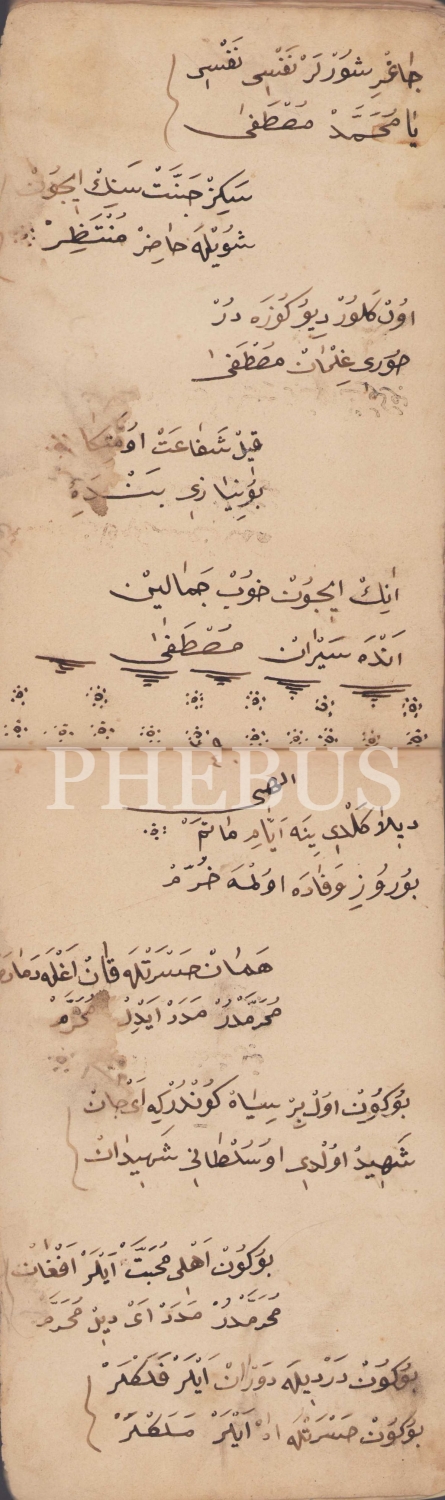 چاغریشورلر نفسی نفسی
یا محمد مصطفی
سکز جنت سنك ایچون
شویله حاضر منتظر
اون کلور دیو کوزه در
حوری غلمان مصطفی
قیل شفاعت
بو نیازی بنده
انك ایچون خوب جمالین
انده سیران مصطفی
PHEBUS
الهی
دیلا کلدی ینه ایام ماتم
بو روز وفاده اولمه خرم
همان حسرتله قان اغله دمادم
محرمدر مدد ای دل محرم
بوکون اول بر سیاه کوندرکه ای جان
شهید اولدی او سلطانی شهیدان
بوکون اهلی محبت ایلر افغان
محرمدر مدد ای دیل محرم
بوکون درد یله دوران ایلر فلکلر
بوکون حسرتله اه ایلر ملکلر